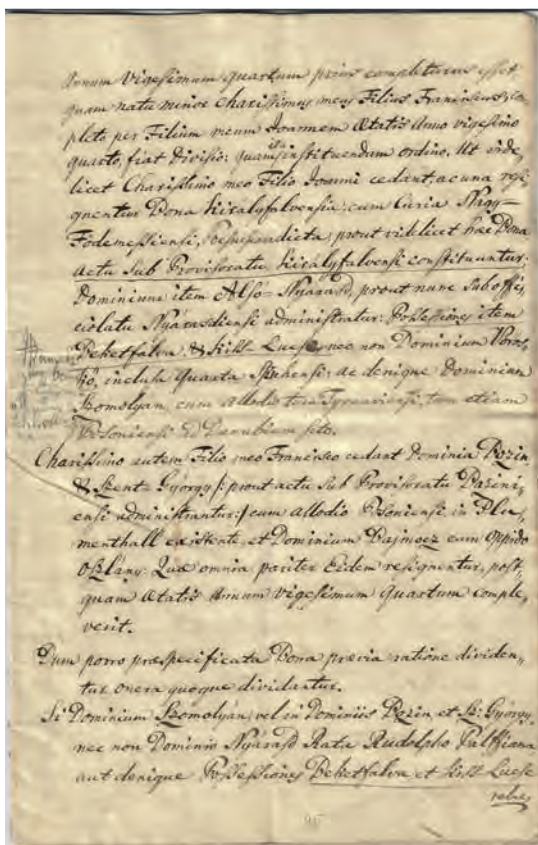 Annum Vigesimum quartum prius completurus esset,
quam natu minor charissimus meus Filius Franciscus, com,
pleto per Filium meum Joannem Ætatis Anno vigesimo
quarto, fiat Divisio: quam ita instituendam ordino. Ut vide,
licet Charissimo meo Filio Joanni cedant, ac una resi,
gnentur Bona Királyfalvensia, cum Curia Nagy=
Födemessiensi, prout videlicet hæc Bona
actu Sub Provisoratu Királyfalvensi constituuntur:
Dominium item Alsó-Nyárasd, prout nunc Sub offi,
ciolatu Nyárasdiensi administratur: Possessiones item
Beketfalva, & Kiss-Lucse, nec non Dominium Vörös,
kő, inclusa Quarta ac denique Dominium
Szomolyán, cum allodio tam Tyrnaviensi, tam etiam
Posoniensi ad Danubium sito.
Charissimo autem Filio meo Francisco cedant Dominia Bozin,
& Szent-György /: prout actu Sub Provisoratu Bazini,
ensi administrantur :/ cum allodio Posoniensi in Blu,
menthall existente, et Dominium Bajmocz cum Oppido
Oszlány. Quæ omnia pariter Eidem resignentur, post,
quam Ætatis Annum vigesimum quartum comple,
verit.
Dum porro præspecificata Bona prævia ratione dividen,
tur onera quoque dividantur.
Si Dominium Szomolyán, vel in Dominiis Bozin, et Sz: György,
nec non Dominio Nyárasd Rata Rudolpho Palffiana
aut denique Possessiones Beketfalva et Kiss Lucse